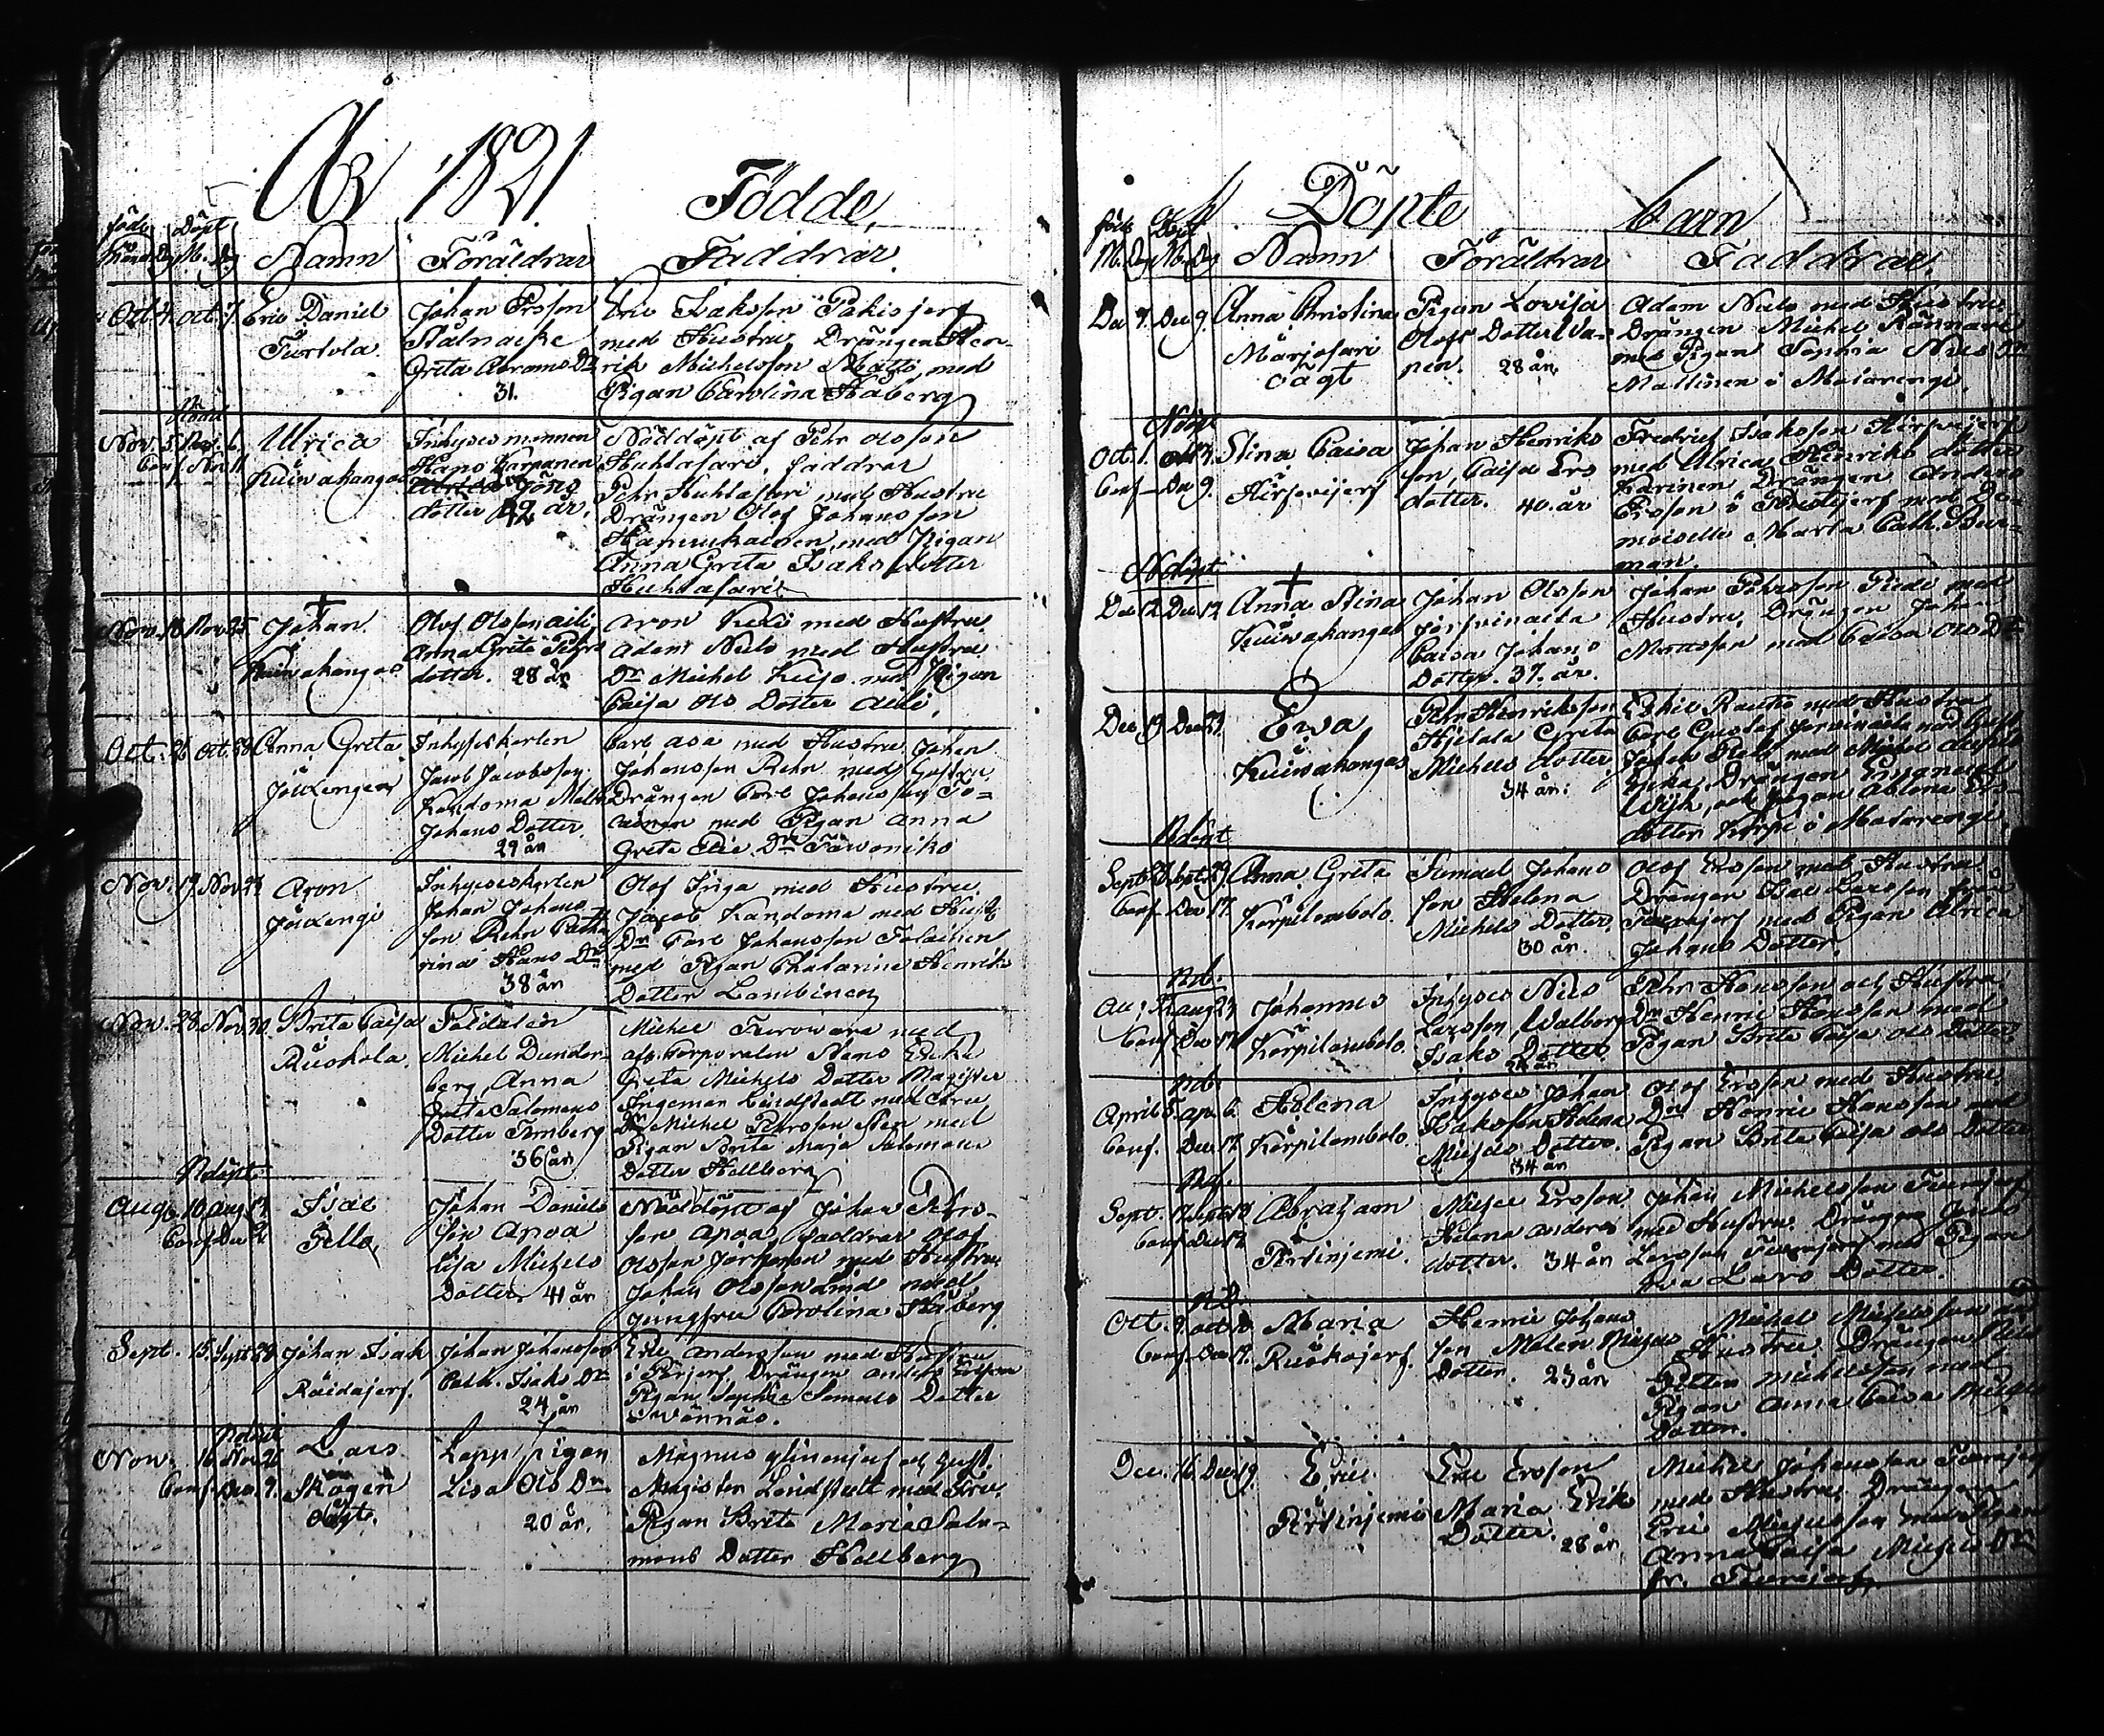 År 1821 Födde,
föde Döpt
Månad Dg M. Dg Namn Föräldrar Faddrar.
Oct. 4. Oct. 7. Eric Daniel
Turtola.
Johan Ersson
Stålnacke
Greta Abrams Dr
31.
Eric Isaksson Pakisjerf
med Hustru, Drängen Hen-
rik Michelsson Matti, med
Pigan Carolina Håberg
Nov. 5 Nov. 6.
Conf. Nov. 11
Ulrica
Kuiwakangas
Inhysesmannen
Hans Karpanen
dotter 42 år.
Nöddöpt af Pehr Olsson
Huhtasari, faddrar
Pehr Huhtasari med Hustru
Drängen Olof Johansson
med Pigan
Anna Greta Isaks Dotter
Huhtasari
Nov. 18 Nov. 25 Johan
Kuiwakangas
Olof Olsson Aili,
Anna Greta Pehrs
dotter. 28 år
Aron med Hustru
Adam Niels med Hustru
Dr Michel Kujo med Pigan
Caisa Ols Dotter Aili,
Oct. 26 Oct. 28 Anna Greta
Juxengen
Inhyseskarlen
Jacob Jacobsson
Kandoma
Johans Dotter
29 år
Carl Asa med Hustru, Johan
Johansson Rehn med Hustru
Drängen Carl Johansson
med Pigan Anna
Greta Eric Dr
Nov. 19. Nov. 23 Aron
Juxengi
Inhyseskarlen
Johan Johans-
son Rehn Catha
rina Hans Dr
38 år
Olof Inga med Hustru,
Jacob Kandoma med Hust.
Dr Carl Johansson
med Pigan Chatarina Henriks
Dotter Lambinen
Nov. 28. Nov. 30. Brita Caisa
Ruskola.
Soldaten
Michel Dunder-
berg, Anna
Greta Salomons
Dotter
36 år
Michel med
afs. Corporalen Hans
Greta Michels Dotter Magister
Ingeman Lindstedt med Fru
Dr Michel Pehrsson med
Pigan Brita Maja Salomons
Dotter Hallberg
Ndöpt
Aug. 10 Aug. 12
Conf. Dec. 2
Isac
Pello,
Johan Daniels
son Apoa
Lisa Michels
Dotter, 41 år
Nöddöpt af Johan Pehrs-
son Apoa, faddrar Olof
Olsson med Hustru,
Johan Olsson med
jungfru Carolina Håberg
Sept. 15. Sept. 23. Johan Isak
Räidajerf.
Johan Johansson
Cath. Isaks Dr
24 år
Eric Andersson med Hustru
i Pirjerf, Drängen Anders Ersson
Pigan Sophia Samuels Dotter
Swannäs.
Ndöpt
Nov. 16. Nov. 26
Conf. Dec. 9.
Lars
Skogen
oägt.
Lapp pigan
Lisa Ols Dr
20 år.
Magnus och Hust.
Magister Lindstedt med Fru.
Pigan Brita Maria Salo-
mons Dotter Hallberg
Döpte barn
föde Döpt
M. Dg M. Dg Namn Föräldrar Faddrar.
Dec. 7. Dec. 9. Anna Christina
Märjosari
oägt
Pigan Lovisa
Olofs Dotter
28 år
Adam Niels med Hustru
Drängen Michel Rännare
med Pigan Sophia Niels Dr
Mallinen i Matarengi,
Ndöpt
Oct. 1. Oct.
Conf. Dec. 9.
Stina Caisa
Hirsvijerf
Johan Henriks
son, Caisa Ers
dotter. 40 år
Fredrich Isaksson Hirsvijerf
med Ulrica Henriks dotter
Karinen Drängen Anders
Ersson i med De-
moiselle Maria Cath. Bur-
man.
Ndöpt
Dec. 12. Dec. 12. Anna Stina
Kuiwakangas
Johan Olsson
Jersvinaita
Caisa Johans
Dotter. 37. år.
Johan Pehrsson med
Hustru, Drängen Johan
Mattsson med Caisa Ols Dr
Dec. 19. Dec. 23 Ewa
Kuiwakangas
Pehr Henriksson
Hjetala Greta
Michels dotter,
34 år.
Rautio med Hustru
Carl Gustaf med Hust.
Johan
Drängen Emanuel
Wijk, och Pigan Ers-
dotter Korpi i Matarengi
Ndöpt
Sept. 28 Sept. 29. Anna Greta
Conf. Dec. 17. Korpilombolo.
Samuel Johans
son Helena
Michels Dotter,
30 år.
Olof Ersson med Hustru
Drängen Isac Larsson från
med Pigan Ulrica
Johans Dotter.
Nd.
Aug. Aug. 23 Johannes
Conf. Dec. 17. Korpilombolo.
Inhyses Nils
Larsson, Walborg
Isaks Dotter
Pehr Hansson och Hustru
Dr Henric Hansson med
Pigan Brita Caisa Ols Dotter.
Nd.
April 5. Apr. 6. Helena
Conf. Dec. 17. Korpilombolo.
Inhyses Johan
Isaksson Helena
Michels Dotter.
34 år
Olof Ersson med Hustru,
Dr Henric Hansson med
Pigan Brita Caisa Ols Dotter
Nd.
Sept. Abraham
Conf. Dec. Pirtinjemi.
Michel Ersson,
Helena Anders
dotter. 34 år
Johan Michelsson
med Hustru. Drängen Jons
Larsson med Pigan
Lars Dotter.
N.D.
Oct. 9. Oct. Maria
Conf. Dec. 19. Ruskojerf.
Henric Johans
son Malen Michels
Dotter. 23 år
Michel Michelsson
Hustru Drängen Nils
Petter Michelsson med
Pigan Anna Caisa Michels
Dotter.
Dec. 16. Dec. 19. Eric
Pirtinjemi
Eric Ersson
Maria Erik
Dotter. 28 år
Michel Johansson
med Hustru, Drängen
Eric Michelsson med Pigan
Anna Caisa Michels Dr
fr.